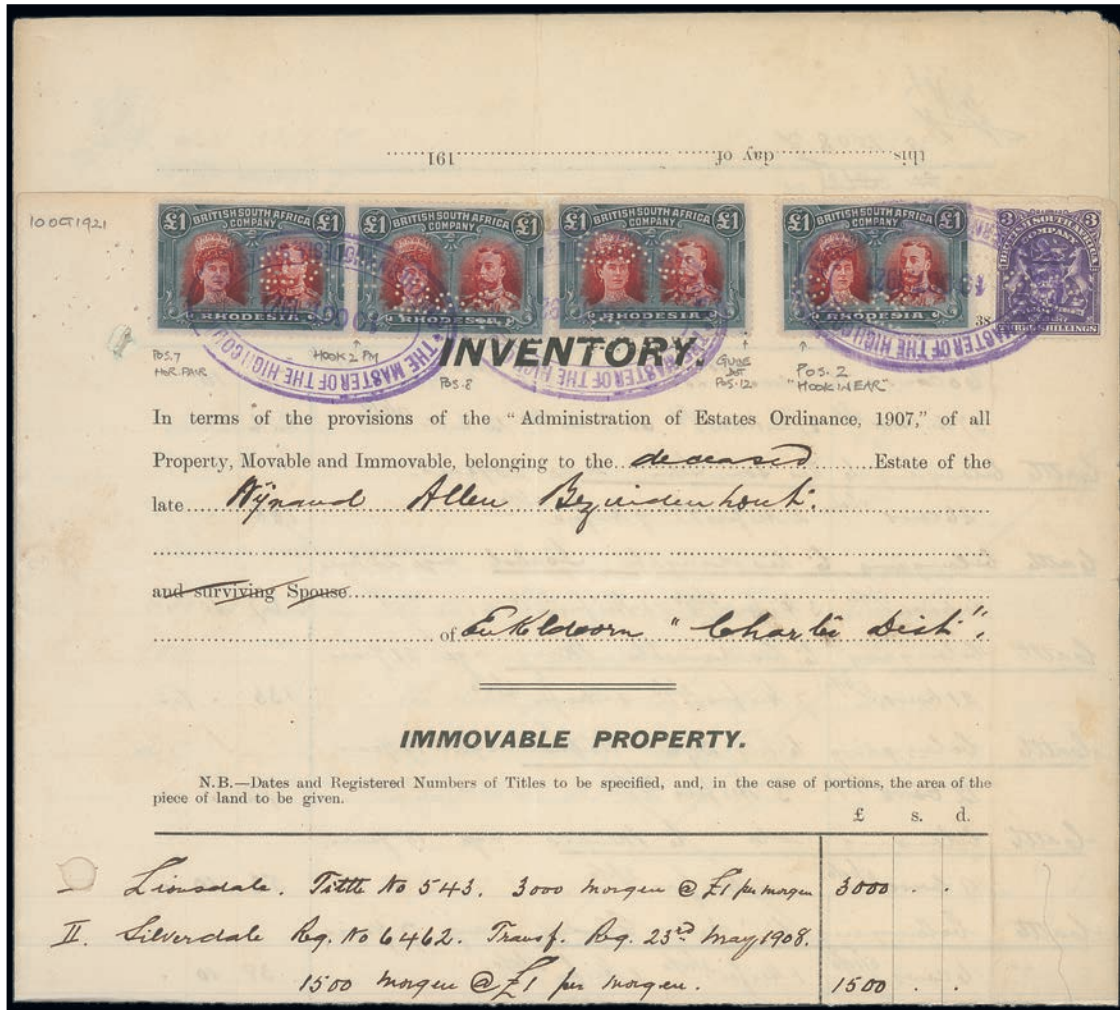 this ............ day of ............ 191......
10 OCT 1921
£1 BRITISH SOUTH AFRICA COMPANY £1
RHODESIA
£1 BRITISH SOUTH AFRICA COMPANY £1
RHODESIA
£1 BRITISH SOUTH AFRICA COMPANY £1
RHODESIA
£1 BRITISH SOUTH AFRICA COMPANY £1
RHODESIA
38
3 BRITISH SOUTH AFRICA 3
COMPANY
THREE SHILLINGS
THE MASTER OF THE HIGH
MASTER OF THE HIGH
POS. 7
HOR. PAIR
HOOK 2 PM
POS. 8
GUIDE
DOT
POS. 12
POS. 2
"HOOK IN EAR"
INVENTORY.
In terms of the provisions of the “Administration of Estates Ordinance, 1907,” of all
Property, Movable and Immovable, belonging to the deceased Estate of the
late Wÿnand Allen Bezuidenhout.
and surviving Spouse
of Enkeldoorn "Charter Dist".
IMMOVABLE PROPERTY.
N.B.—Dates and Registered Numbers of Titles to be specified, and, in the case of portions, the area of the
piece of land to be given.
£ s. d.
I Lionsdale. Tittle No 543. 3000 morgen @ £1 per morgen 3000 . .
II. Silverdale Reg. No 6462. Transf. Reg. 23rd May 1908.
1500 morgen @ £1 per morgen. 1500 . .